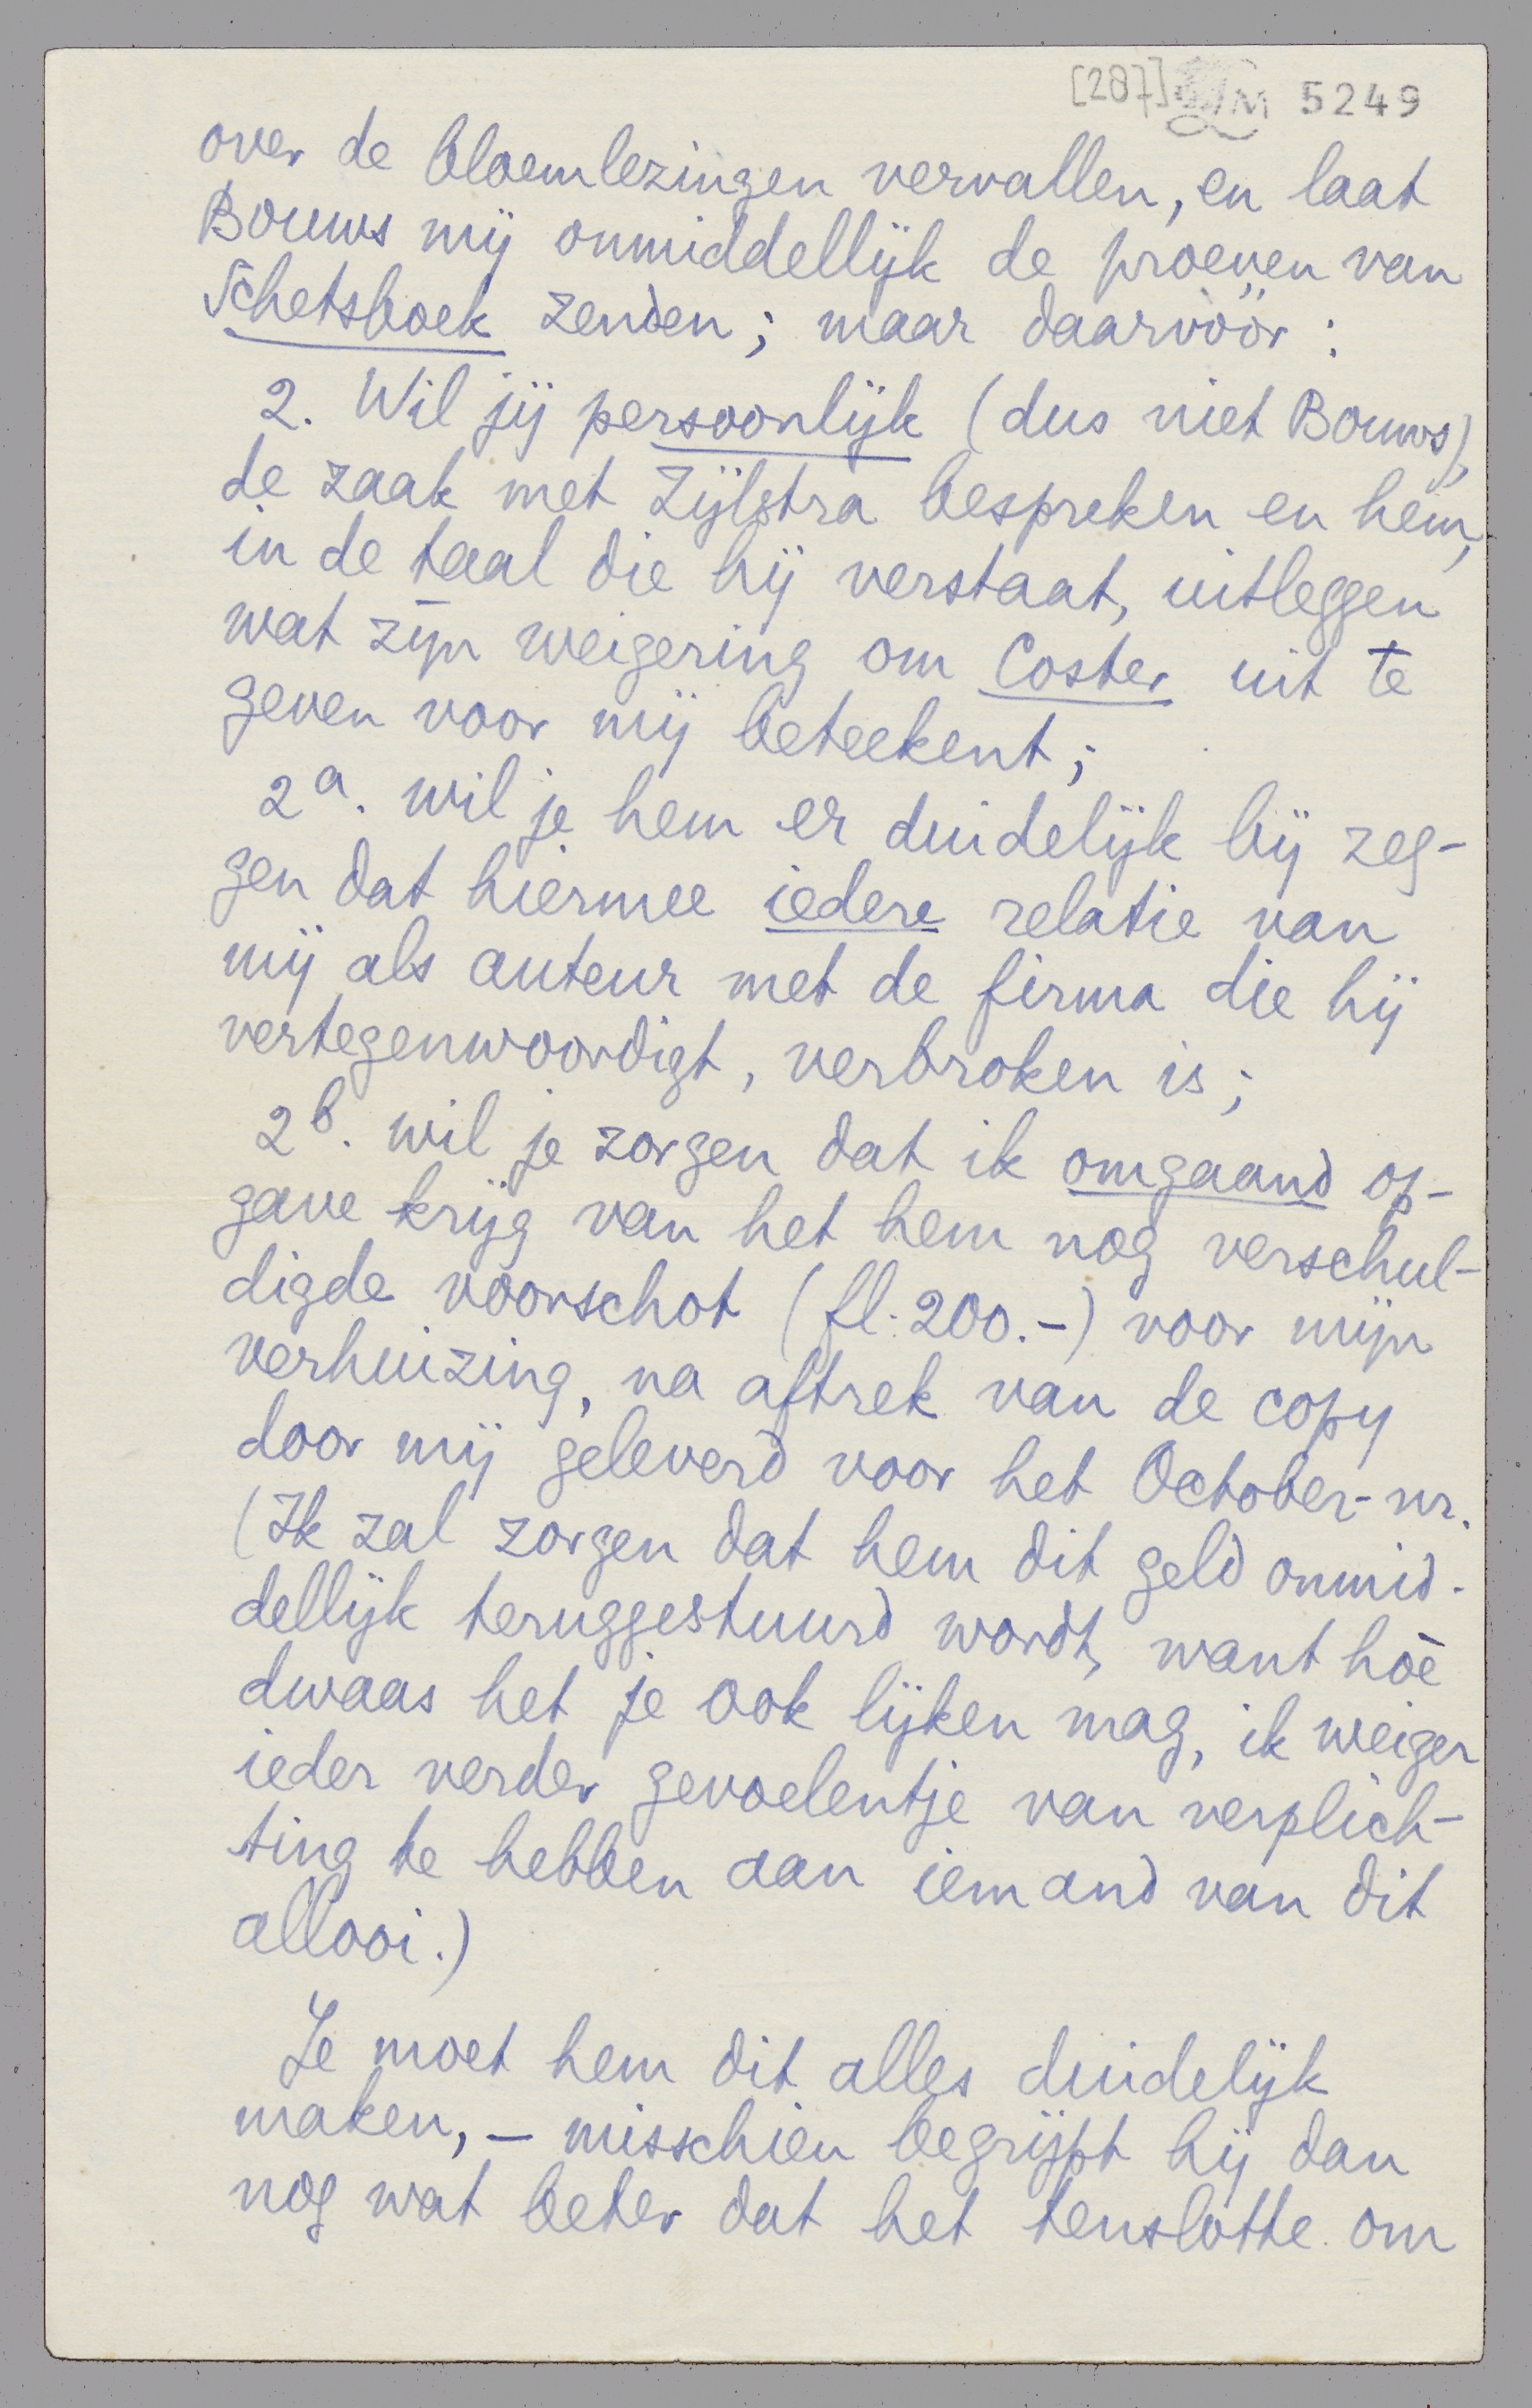 [287] LM 5249
over de bloemlezingen vervallen, en laat
Bouws mij onmiddellijk de proeven van
Schetsboek zenden; maar daarvóór:
2. Wil jij persoonlijk (dus niet Bouws),
de zaak met Zijlstra bespreken en hem,
in de taal die hij verstaat, uitleggen
wat zijn weigering om Coster uit te
geven voor mij beteekent;
2a. wil je hem er duidelijk bij zeg-
gen dat hiermee iedere relatie van
mij als auteur met de firma die hij
vertegenwoordigt, verbroken is;
2b. wil je zorgen dat ik omgaand op-
gave krijg van het hem nog verschul-
digde voorschot (fl. 200.-) voor mijn
verhuizing, na aftrek van de copy
door mij geleverd voor het October-nr.
(Ik zal zorgen dat hem dit geld onmid-
dellijk teruggestuurd wordt, want hoè
dwaas het je ook lijken mag, ik weiger
ieder verder gevoelentje van verplich-
ting te hebben aan iemand van dit
allooi.)
Je moet hem dit alles duidelijk
maken, — misschien begrijpt hij dan
nog wat beter dat het tenslotte om